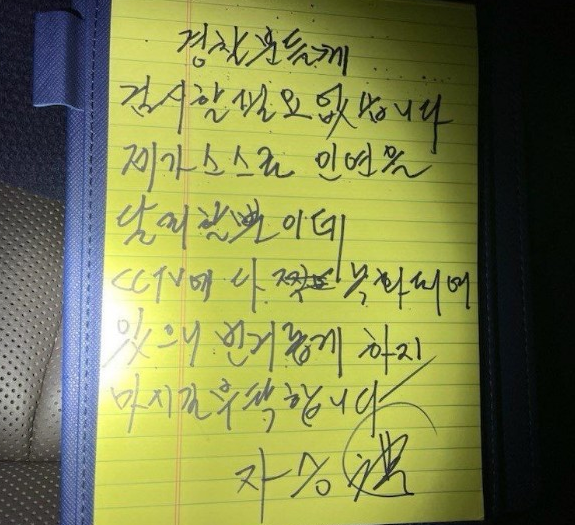 경찰분들께
검시할 필요 없습니다
제가 스스로 인연을
달리할 뿐인데
CCTV에 다 녹화되어
있으니 번거롭게 하지
마시길 부탁합니다
자승